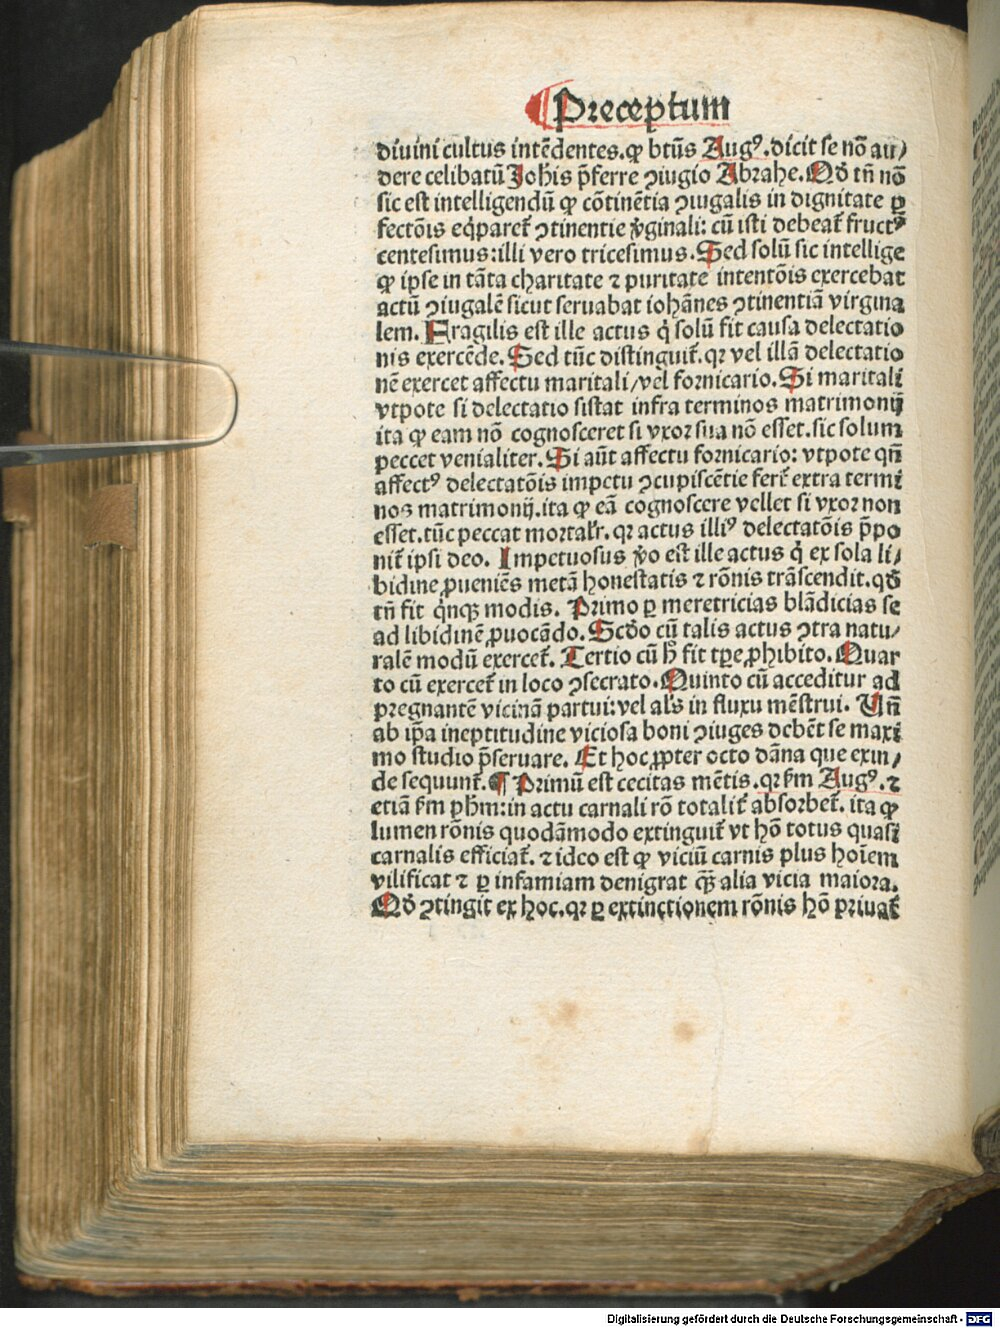 Preceptum
diuini cultus intẽdentes.qꝫ btũs Augꝰ.dicit se nõ au/
dere celibatũ Johĩs p̃ferre ꝯiugio Abrahe.Qð tñ nõ
sic est intelligendũ qꝫ cõtinẽtia ꝯiugalis in dignitate ꝑ
fectõis eq̇paret̃ ꝯtinentie v̾ginali: cũ isti debeat̃ fructꝰ
centesimus:illi vero tricesimus.Sed solũ sic intellige
qꝫ ipse in tãta charitate ⁊ puritate intentõis exercebat
actũ ꝯiugalẽ sicut seruabat iohãnes ꝯtinentiã virgina
lem.Fragilis est ille actus q̇ solũ fit causa delectatio
nis exercẽde.Sed tũc distinguit̃.qꝛ vel illã delectatio
nẽ exercet affectu maritali/vel fornicario.Si maritali
vtpote si delectatio sistat infra terminos matrimonij
ita qꝫ eam nõ cognosceret si vxor sua nõ esset.sic solum
peccet venialiter.Si aũt affectu fornicario: vtpote qñ
affectꝰ delectatõis impetu ꝯcupiscẽtie fert̃ extra termi
nos matrimonij.ita qꝫ eã cognoscere vellet si vxor non
esset.tũc peccat mortalr̃.qꝛ actus illiꝰ delectatõis p̃po
nit̃ ipsi deo. Impetuosus v̾o est ille actus q̇ ex sola li/
bidine ꝓueniẽs metã honestatis ⁊ rõnis trãscendit.qð
tñ fit q̇nqꝫ modis. Primo ꝑ meretricias blãdicias se
ad libidinẽ ꝓuocãdo.Scðo cũ talis actus ꝯtra natu/
ralẽ modũ exercet̃.Tertio cũ h̾ fit tꝑe ꝓhibito.Quar
to cũ exercet̃ in loco ꝯsecrato.Quinto cũ acceditur ad
pregnantẽ vicinã partui:vel al̾s in fluxu mẽstrui. Vñ
ab ip̃a ineptitudine viciosa boni ꝯiuges debẽt se maxi
mo studio p̃seruare. Et hoc ꝓpter octo dãna que exin/
de sequunt̃.¶ Primũ est cecitas mẽtis.qꝛ s̾m Augꝰ.⁊
etiã s̾m pħm:in actu carnali rõ totalit̃ absorbet̃. ita qꝫ
lumen rõnis quodãmodo extinguit̃ vt hõ totus quasi
carnalis efficiat̃. ⁊ ideo est qꝫ viciũ carnis plus hoĩem
vilificat ⁊ ꝑ infamiam denigrat q̃ꝫ alia vicia maiora.
Qð ꝯtingit ex hoc.qꝛ ꝑ extinctionem rõnis hõ priuat̃
Digitalisierung gefördert durch die Deutsche Forschungsgemeinschaft - DFG